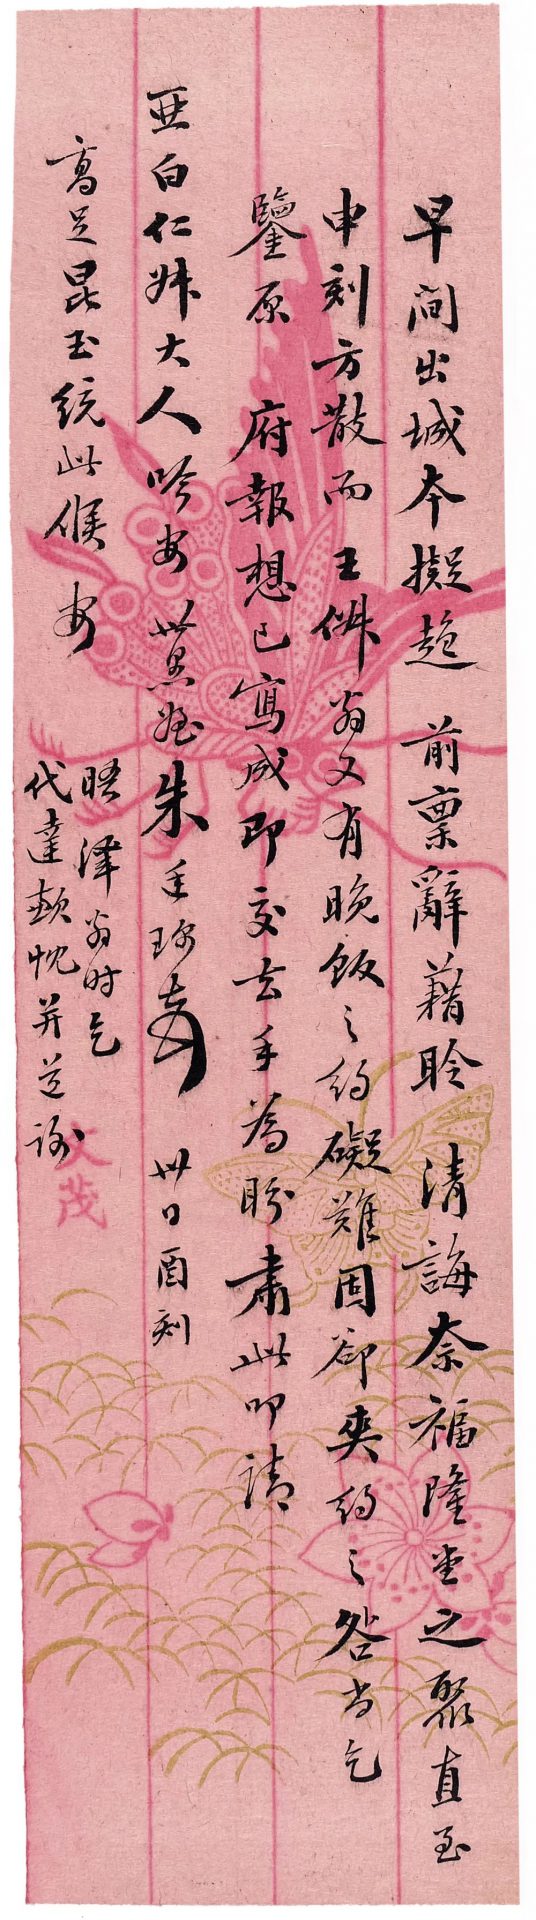 早间出城本擬趋　前稟辭藉聆　清誨奈福隆堂之聚直至
申刻方散而王佛翁又有晚飯之約礙難固卻爽約之咎尚乞
鑒原　府報想已寫成即交去手為盼肅此叩請
亜白仁妹大人吟安　世愚姪朱廷
廿日酉刻
高足昆玉統此候安
晤澤翁时乞
代達歉忱并道谢
文茂